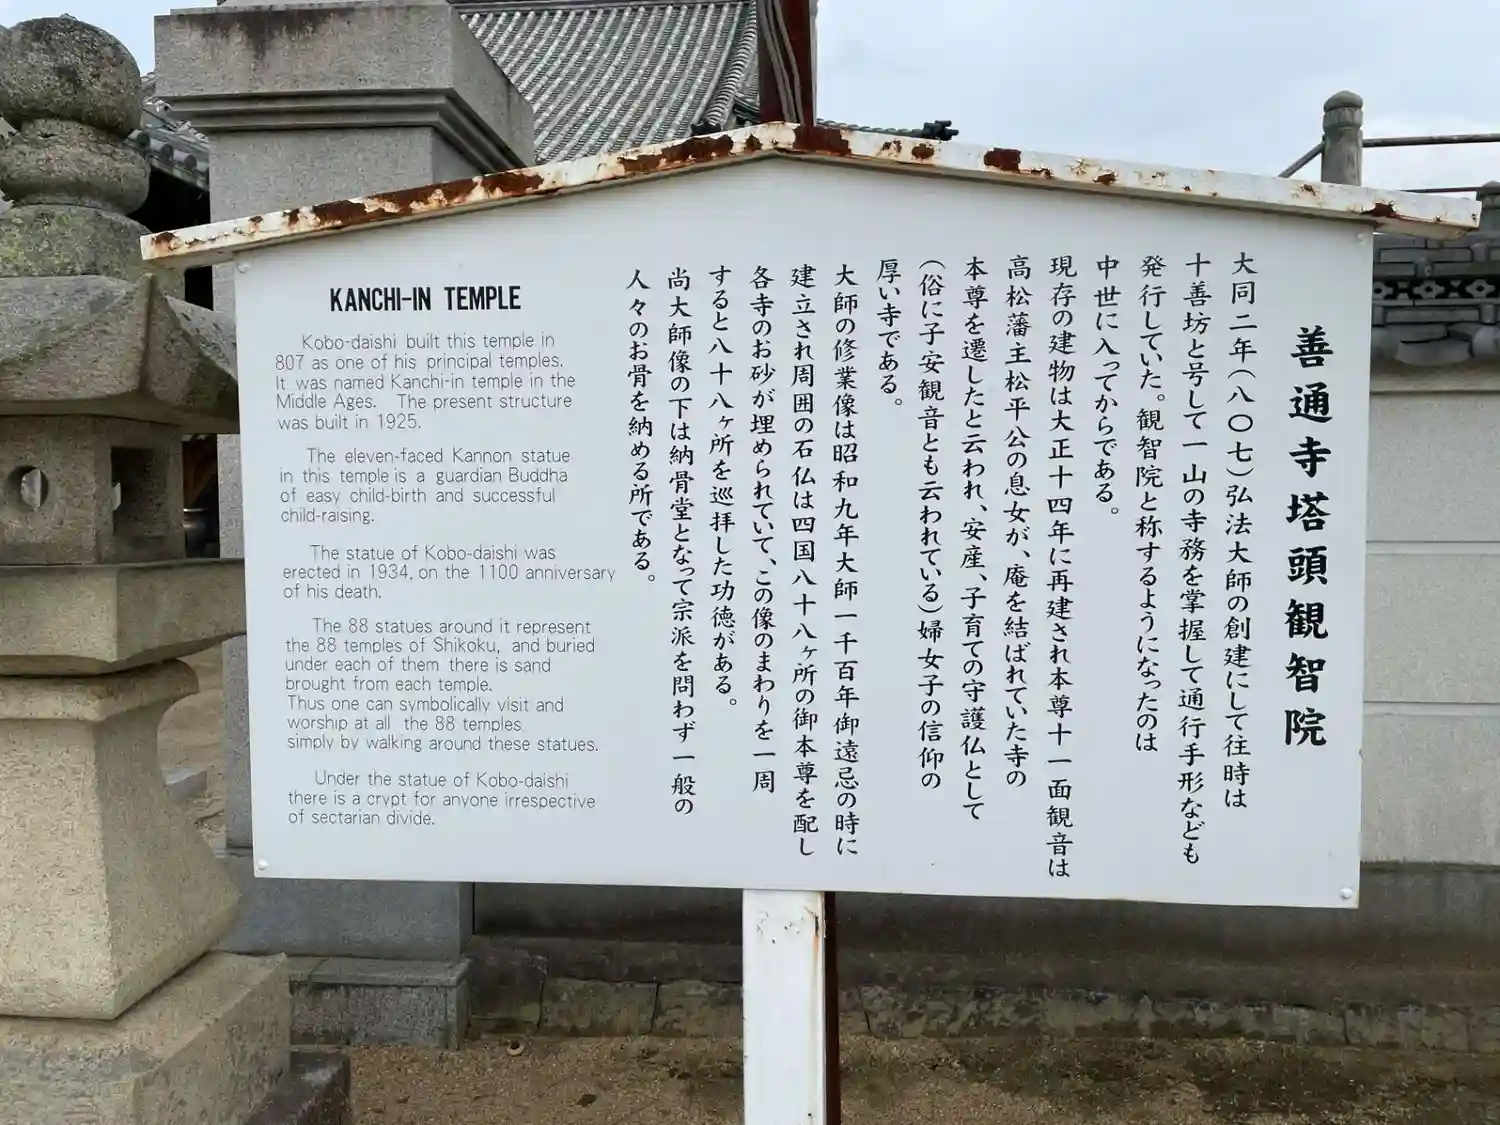 KANCHI-IN TEMPLE
Kobo-daishi built this temple in
807 as one of his principal temples.
It was named Kanchi-in temple in the
Middle Ages. The present structure
was built in 1925.
The eleven-faced Kannon statue
in this temple is a guardian Buddha
of easy child-birth and successful
child-raising.
The statue of Kobo-daishi was
erected in 1934, on the 1100 anniversary
of his death.
The 88 statues around it represent
the 88 temples of Shikoku, and buried
under each of them there is sand
brought from each temple.
Thus one can symbolically visit and
worship at all the 88 temples
simply by walking around these statues.
Under the statue of Kobo-daishi
there is a crypt for anyone irrespective
of sectarian divide.
善通寺塔頭観智院
大同二年(八〇七)弘法大師の創建にして往時は
十善坊と号して一山の寺務を掌握して通行手形なども
発行していた。観智院と称するようになったのは
中世に入ってからである。
現存の建物は大正十四年に再建され本尊十一面観音は
高松藩主松平公の息女が、庵を結ばれていた寺の
本尊を遷したと云われ、安産、子育ての守護仏として
(俗に子安観音とも云われている)婦女子の信仰の
厚い寺である。
大師の修業像は昭和九年大師一千百年御遠忌の時に
建立され周囲の石仏は四国八十八ヶ所の御本尊を配し
各寺のお砂が埋められていて、この像のまわりを一周
すると八十八ヶ所を巡拝した功徳がある。
尚大師像の下は納骨堂となって宗派を問わず一般の
人々のお骨を納める所である。